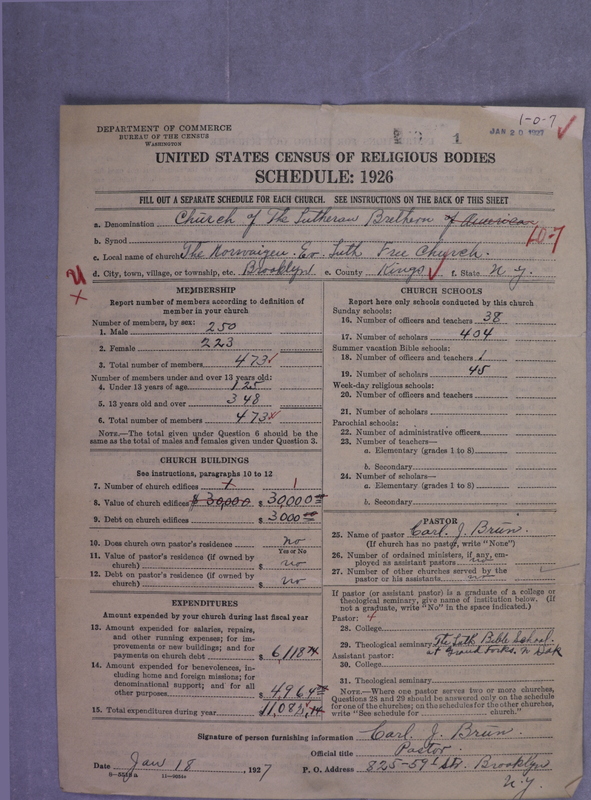 1-0-7
DEPARTMENT OF COMMERCE
BUREAU OF THE CENSUS
WASHINGTON
JAN 20 1927
UNITED STATES CENSUS OF RELIGIOUS BODIES
SCHEDULE: 1926
FILL OUT A SEPARATE SCHEDULE FOR EACH CHURCH. SEE INSTRUCTIONS ON THE BACK OF THIS SHEET
a. Denomination Church of The Lutheran Brethern of American
b. Synod
c. Local name of church The Norwaigen. Ev. Luth Free Church.
d. City, town, village, or township, etc. Brooklyn e. County Kings f. State N. Y.
MEMBERSHIP
Report number of members according to definition of
member in your church
Number of members, by sex:
1. Male 250
2. Female 223
3. Total number of members 473
Number of members under and over 13 years old:
4. Under 13 years of age 125
5. 13 years old and over 348
6. Total number of members 473
NOTE.—The total given under Question 6 should be the
same as the total of males and females given under Question 3.
CHURCH BUILDINGS
See instructions, paragraphs 10 to 12
7. Number of church edifices 1
8. Value of church edifices $ 30,000 $ 30,000
9. Debt on church edifices $ 3000
10. Does church own pastor's residence no
Yes or No
11. Value of pastor's residence (if owned by
church) $ no
12. Debt on pastor's residence (if owned by
church) $ no
EXPENDITURES
Amount expended by your church during last fiscal year
13. Amount expended for salaries, repairs,
and other running expenses; for im-
provements or new buildings; and for
payments on church debt $ 6,118
14. Amount expended for benevolences, in-
cluding home and foreign missions; for
denominational support; and for all
other purposes $ 4,964
15. Total expenditures during year
CHURCH SCHOOLS
Report here only schools conducted by this church
Sunday schools:
16. Number of officers and teachers 38
17. Number of scholars 404
Summer vacation Bible schools:
18. Number of officers and teachers 1
19. Number of scholars 45
Week-day religious schools:
20. Number of officers and teachers
21. Number of scholars
Parochial schools:
22. Number of administrative officers
23. Number of teachers—
a. Elementary (grades 1 to 8)
b. Secondary
24. Number of scholars—
a. Elementary (grades 1 to 8)
b. Secondary
PASTOR
25. Name of pastor Carl. J. Bruin.
(If church has no pastor, write "None")
26. Number of ordained ministers, if any, em-
ployed as assistant pastors no
27. Number of other churches served by the
pastor or his assistants no
If pastor (or assistant pastor) is a graduate of a college or
theological seminary, give name of institution below. (If
not a graduate, write "No" in the space indicated.)
Pastor:
28. College
29. Theological seminary The Luth Bible School.
at Grand Forks. N Dak
Assistant pastor:
30. College
31. Theological seminary
NOTE.—Where one pastor serves two or more churches,
Questions 28 and 29 should be answered only on the schedule
for one of the churches; on the schedules for the other churches,
write "See schedule for church."
Signature of person furnishing information Carl. J. Bruin.
Official title Pastor.
Date Jan 18, 1927 P. O. Address 825-59th Str. Brooklyn
N.Y.